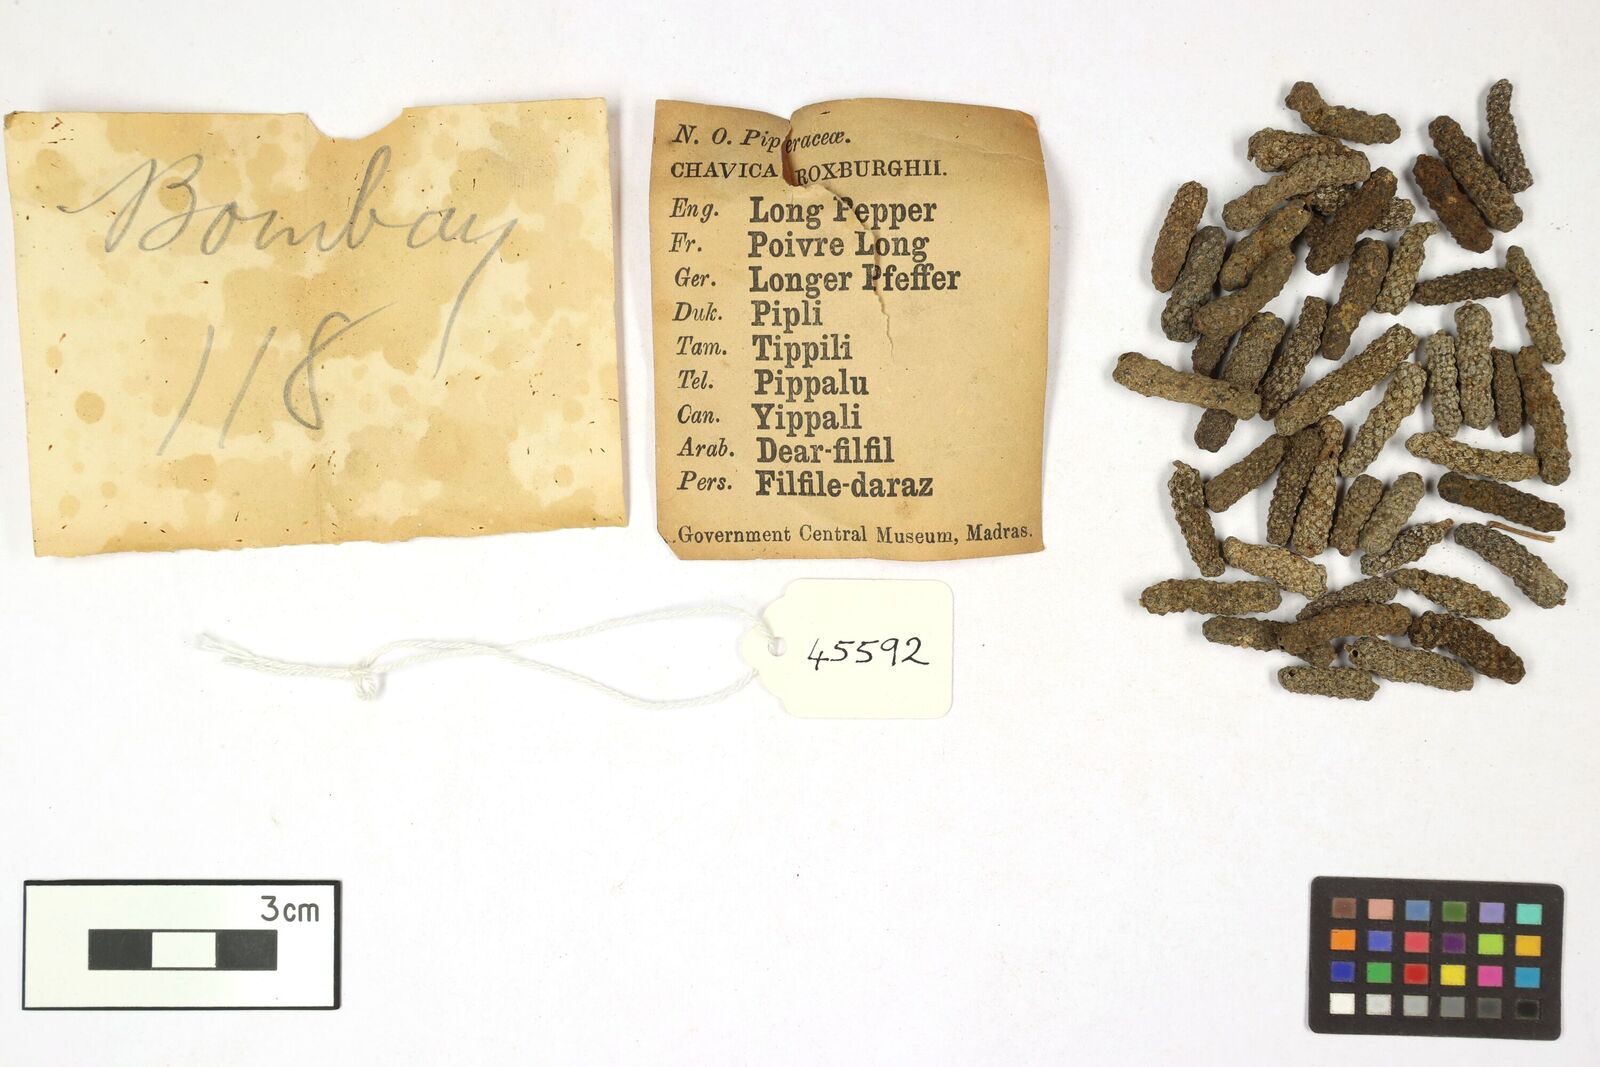 Bombay
118
N. O. Piperaceæ.
CHAVICA ROXBURGHII.
Eng. Long Pepper
Fr. Poivre Long
Ger. Longer Pfeffer
Duk. Pipli
Tam. Tippili
Tel. Pippalu
Can. Yippali
Arab. Dear-filfil
Pers. Filfile-daraz
Government Central Museum, Madras.
45592
3cm